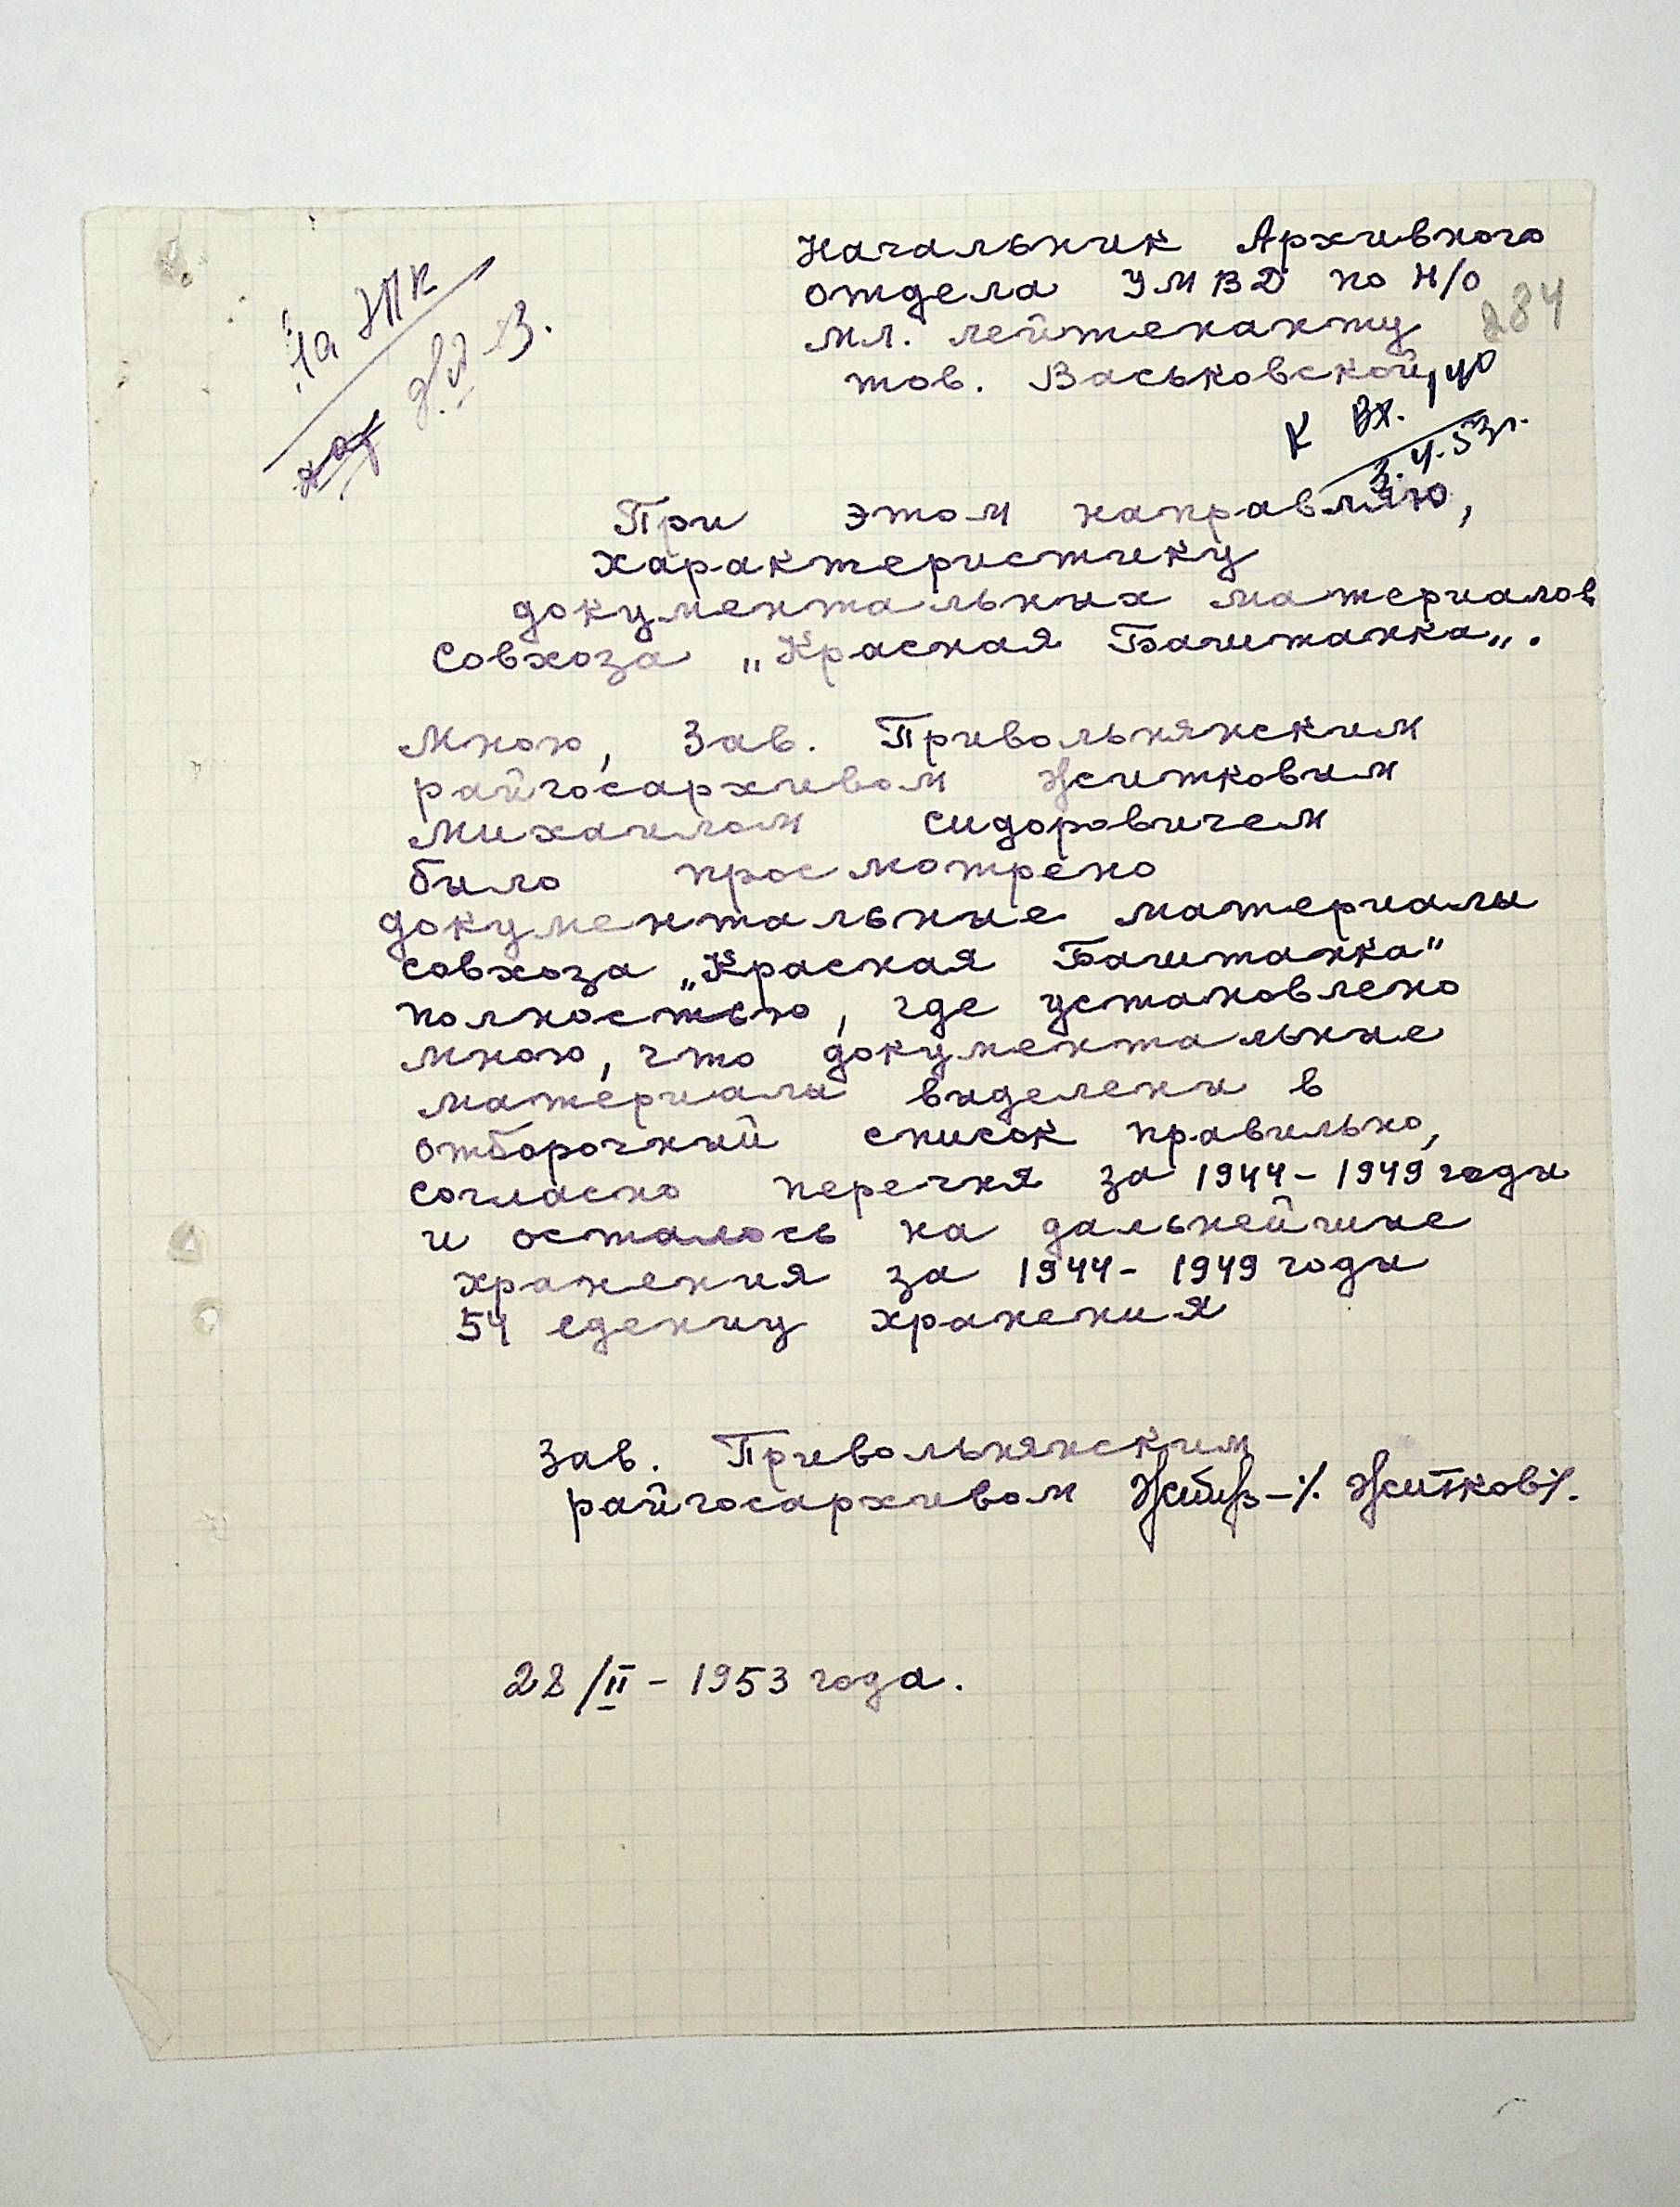 Начальник Архивного
отдела УМВД по Н/О
мл. лейтенанту
тов. Васьковской
284
К вх. 140
3.4.53г.
На ЭПК
При этом направляю,
характеристику
документальных материалов
Совхоза „Красная Баштанка„.
Мною, Зав. Привольнянским
райгосархивом Житковым
Михаилом Сидоровичем
было просмотрено
документальные материалы
совхоза „Красная Баштанка"
полностью, где установлено
мною, что документальные
материалы выделены в
отборочный список правильно,
согласно перечня за 1944-1949 годы
и осталось на дальнейшие
хранения за 1944-1949 годы
54 еденицу хранения
Зав. Привольнянским
райгосархивом /. Житков/.
28/II - 1953 года.